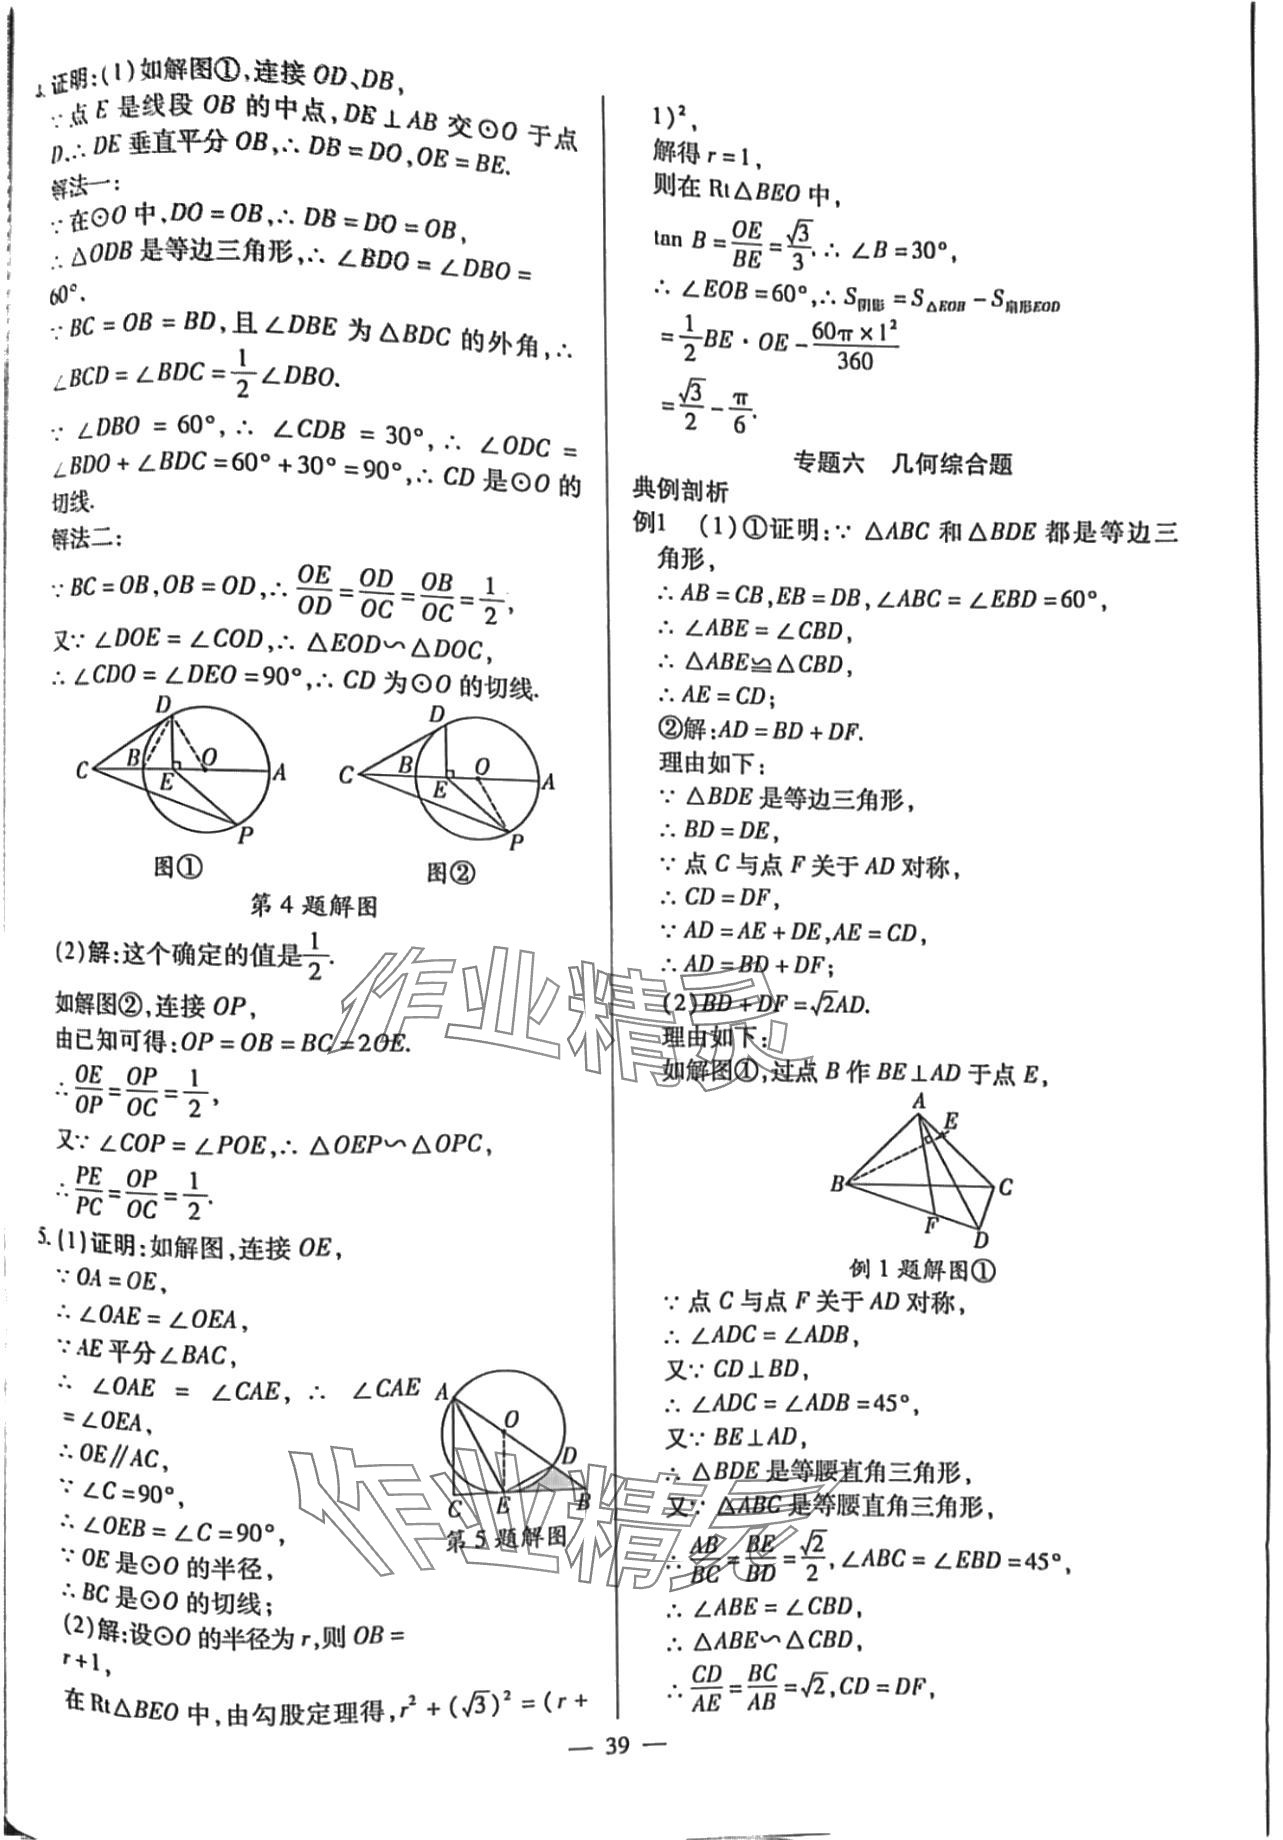 证明:(1)如解图①,连接 OD、DB,
∵点 E 是线段 OB 的中点,DE⊥AB 交⊙O 于点
D,∴DE 垂直平分 OB,∴DB=DO,OE=BE.
解法一:
∵在⊙O 中,DO=OB,∴DB=DO=OB,
∴△ODB 是等边三角形,∴∠BDO=∠DBO=
60°.
∵BC=OB=BD,且∠DBE 为△BDC 的外角,∴
∠BCD=∠BDC=1/2∠DBO.
∵∠DBO=60°,∴∠CDB=30°,∴∠ODC=
∠BDO+∠BDC=60°+30°=90°,∴CD 是⊙O 的
切线.
解法二:
∵BC=OB,OB=OD,∴OE/OD=OD/OC=OB/OC=1/2,
又∵∠DOE=∠COD,∴△EOD∽△DOC,
∴∠CDO=∠DEO=90°,∴CD 为⊙O 的切线.
D
C B E O A
P
图①
D
C B E O A
P
图②
第 4 题解图
(2)解:这个确定的值是1/2.
如解图②,连接 OP,
由已知可得:OP=OB=BC=2OE.
∴OE/OP=OP/OC=1/2,
又∵∠COP=∠POE,∴△OEP∽△OPC,
∴PE/PC=OP/OC=1/2.
5.(1)证明:如解图,连接 OE,
∵OA=OE,
∴∠OAE=∠OEA,
∵AE 平分∠BAC,
∴∠OAE=∠CAE,∴∠CAE
=∠OEA,
∴OE∥AC,
∵∠C=90°,
∴∠OEB=∠C=90°,
∵OE 是⊙O 的半径,
∴BC 是⊙O 的切线;
A
O
D
C E B
第 5 题解图
(2)解:设⊙O 的半径为 r,则 OB=
r+1,
在 Rt△BEO 中,由勾股定理得,r²+(√3)²=(r+
1)²,
解得 r=1,
则在 Rt△BEO 中,
tan B=OE/BE=√3/3.∴∠B=30°,
∴∠EOB=60°,∴S阴影=S△EOB-S扇形EOD
=1/2BE·OE-60π×1²/360
=√3/2-π/6.
专题六 几何综合题
典例剖析
例1 (1)①证明:∵△ABC 和△BDE 都是等边三
角形,
∴AB=CB,EB=DB,∠ABC=∠EBD=60°,
∴∠ABE=∠CBD,
∴△ABE≌△CBD,
∴AE=CD;
②解:AD=BD+DF.
理由如下:
∵△BDE 是等边三角形,
∴BD=DE,
∵点 C 与点 F 关于 AD 对称,
∴CD=DF,
∵AD=AE+DE,AE=CD,
∴AD=BD+DF;
(2)BD+DF=√2AD.
理由如下:
如解图①,过点 B 作 BE⊥AD 于点 E,
A
E
B C
F D
例 1 题解图①
∵点 C 与点 F 关于 AD 对称,
∴∠ADC=∠ADB,
又∵CD⊥BD,
∴∠ADC=∠ADB=45°,
又∵BE⊥AD,
∴△BDE 是等腰直角三角形,
又∵△ABC 是等腰直角三角形,
∴AB/BC=BE/BD=√2/2,∠ABC=∠EBD=45°,
∴∠ABE=∠CBD,
∴△ABE∽△CBD,
∴CD/AE=BC/AB=√2,CD=DF,
— 39 —
作业精灵
作业精灵